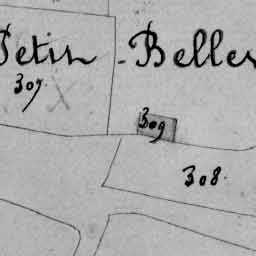 Petin - Belle
307
309
308.